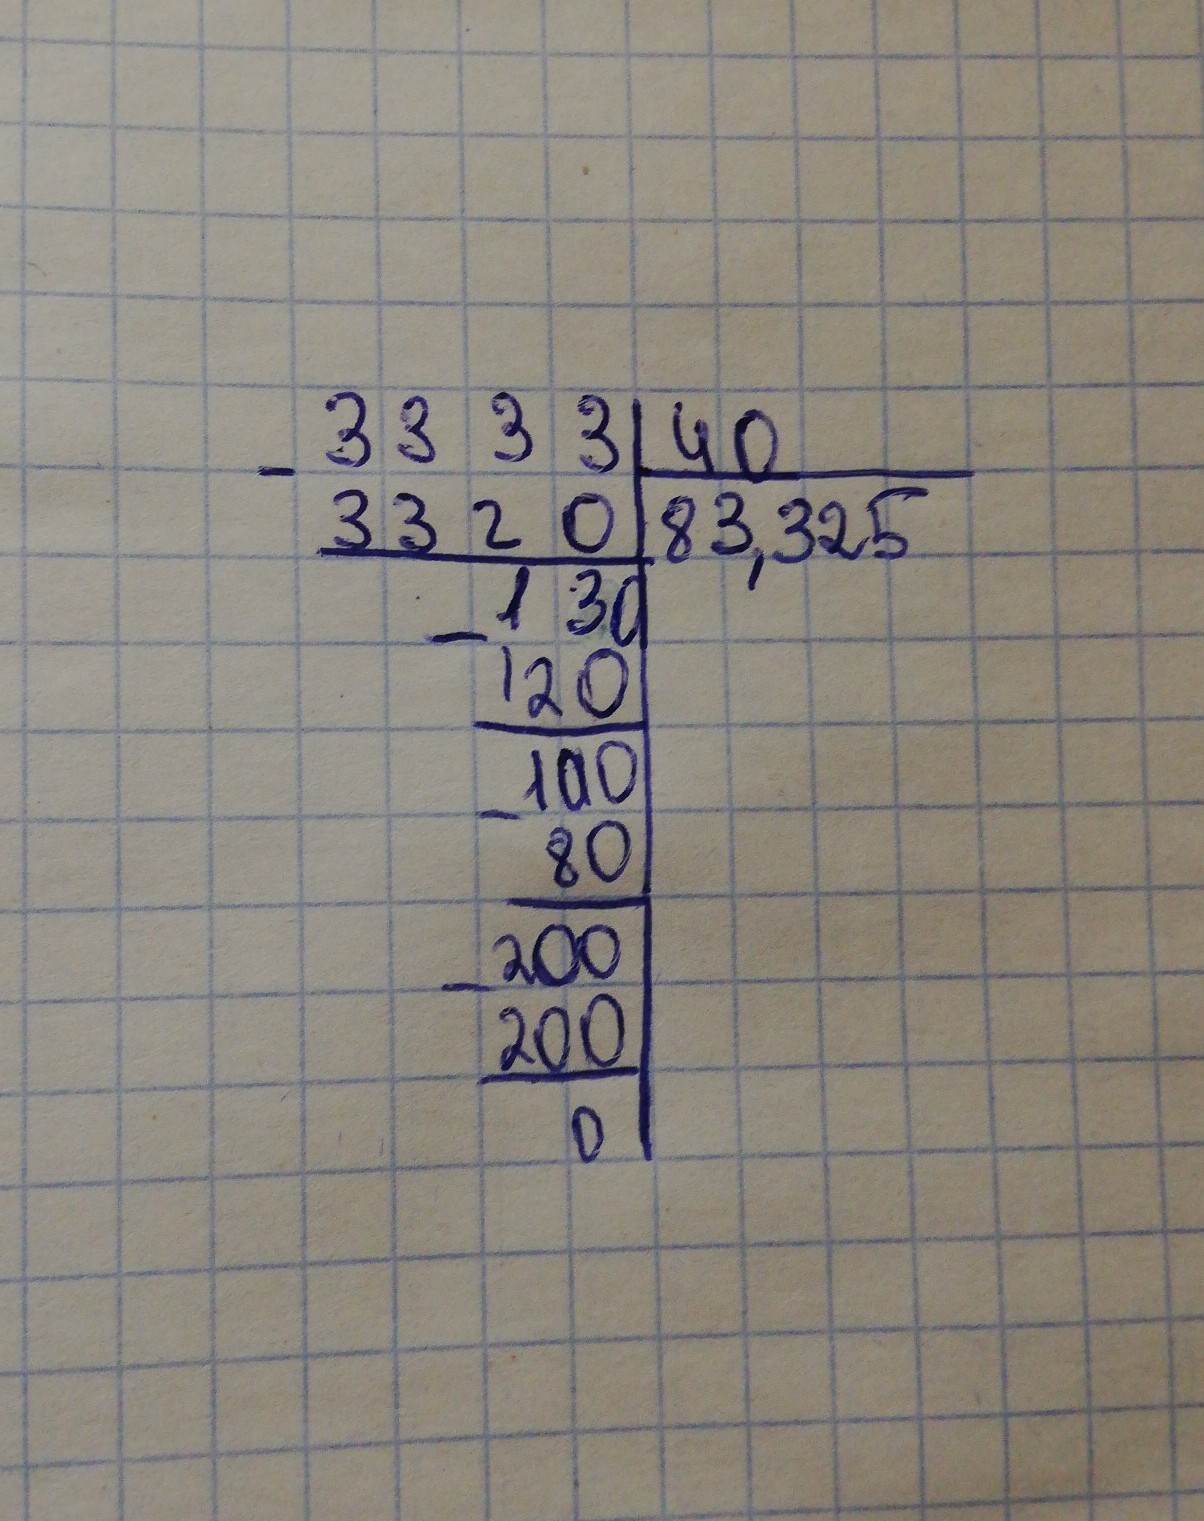 3333 40
- 3320 83,325
- 130
120
- 100
80
- 200
200
0